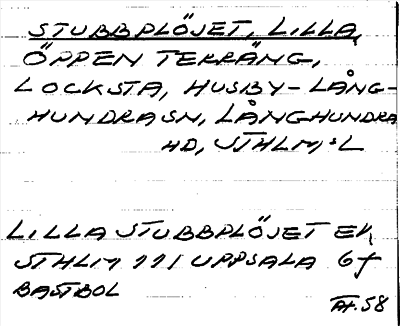 STUBBPLÖJET, LILLA,
ÖPPEN TERRÄNG,
LOCKSTA, HUSBY-LÅNG-
HUNDRASN, LÅNGHUNDRA
HD, STHLM:S L
LILLA STUBBPLÖJET EK,
STHLM 111 UPPSALA 6f
BASTBOL
58